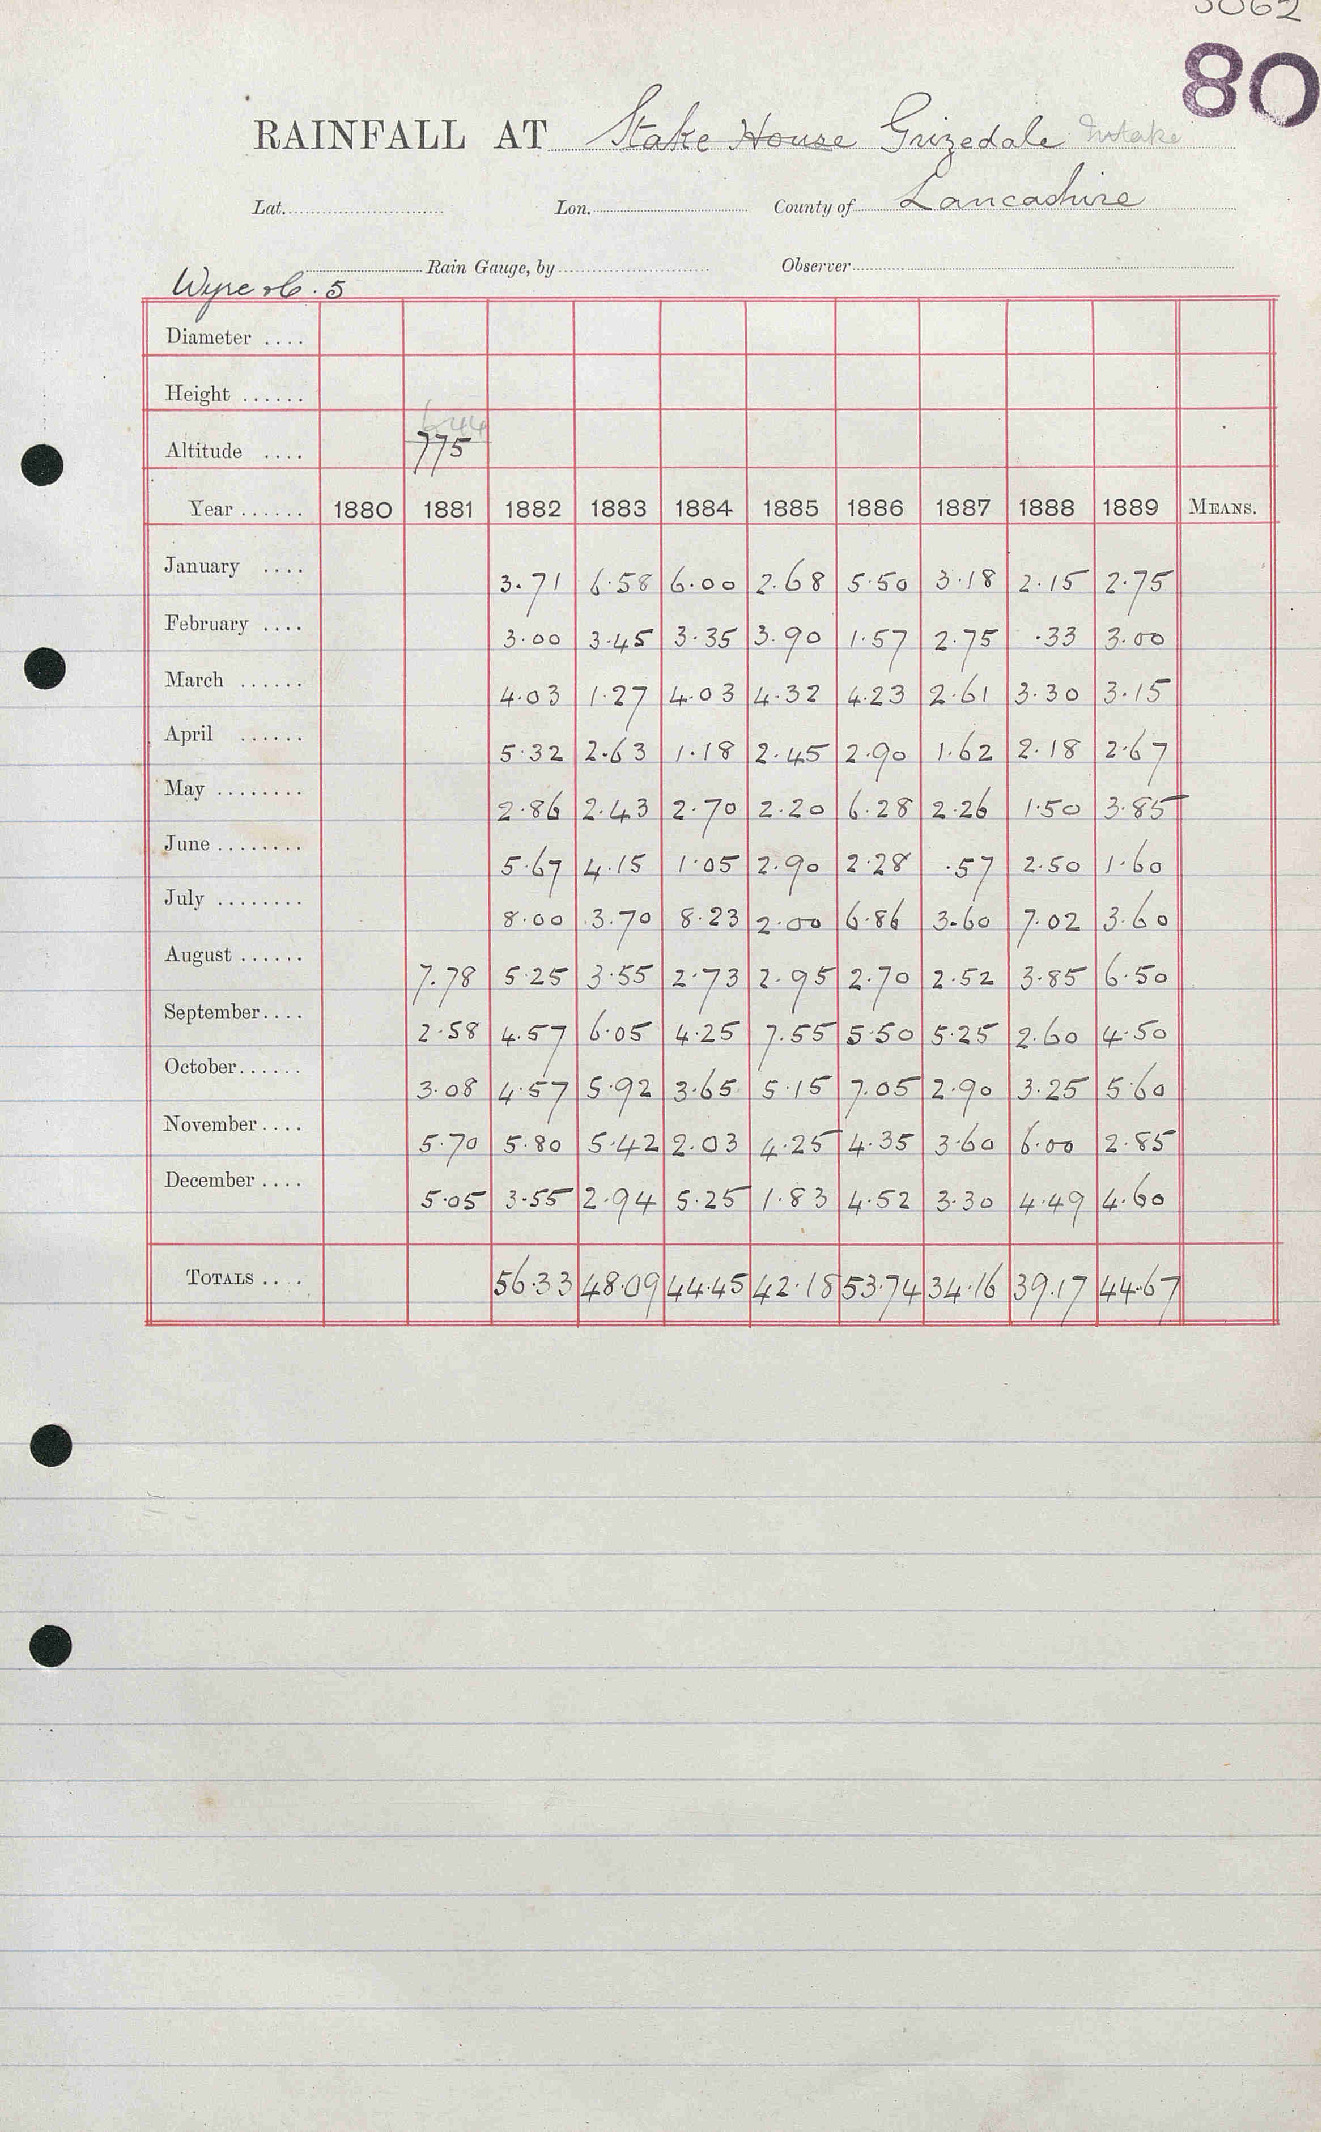 3062
80
RAINFALL AT Stake House Grizedale Intake
Lat. Lon. County of Lancashire
Rain Gauge, by Observer
Wyre . 5
Diameter ....
Height ......
644
Altitude .... 775
Year ...... 1880 1881 1882 1883 1884 1885 1886 1887 1888 1889 MEANS.
January .... 3.71 6.58 6.00 2.68 5.50 3.18 2.15 2.75
February .... 3.00 3.45 3.35 3.90 1.57 2.75 .33 3.00
March ...... 4.03 1.27 4.03 4.32 4.23 2.61 3.30 3.15
April ...... 5.32 2.63 1.18 2.45 2.90 1.62 2.18 2.67
May ........ 2.86 2.43 2.70 2.20 6.28 2.26 1.50 3.85
June ........ 5.67 4.15 1.05 2.90 2.28 .57 2.50 1.60
July ........ 8.00 3.70 8.23 2.00 6.86 3.60 7.02 3.60
August ...... 7.78 5.25 3.55 2.73 2.95 2.70 2.52 3.85 6.50
September.... 2.58 4.57 6.05 4.25 7.55 5.50 5.25 2.60 4.50
October...... 3.08 4.57 5.92 3.65 5.15 7.05 2.90 3.25 5.60
November .... 5.70 5.80 5.42 2.03 4.25 4.35 3.60 6.00 2.85
December .... 5.05 3.55 2.94 5.25 1.83 4.52 3.30 4.49 4.60
TOTALS .... 56.33 48.09 44.45 42.18 53.74 34.16 39.17 44.67